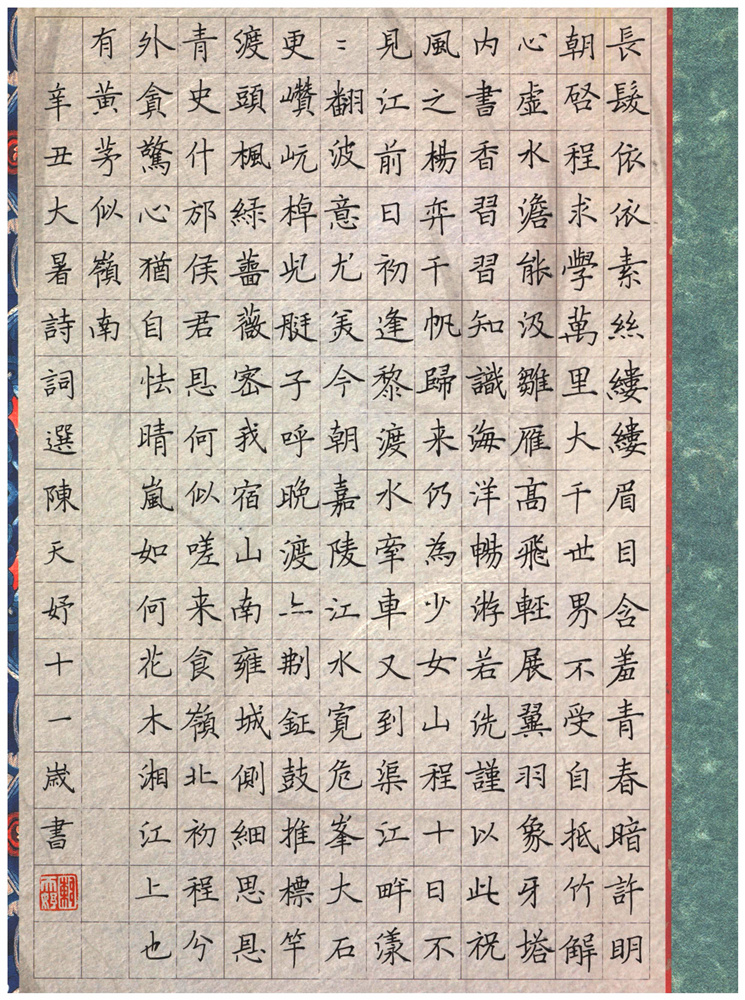 長髮依依素絲縷縷眉目含羞青春暗許明
朝啓程求學萬里大千世界不受自抵竹解
心虛水澹能汲雛雁高飛輕展翼羽象牙塔
內書香習習知識海洋暢游若洗謹以此祝
風之楊弈千帆歸来仍為少女山程十日不
見江前日初逢黎渡水牽車又到渠江畔漾
〻翻波意尤美今朝嘉陵江水寬危峯大石
更巑岏棹艇子呼晚渡荆鉦鼓推標竿
渡頭楓綠薔薇密我宿山南雍城側細思恩
青史什邡侯君恩何似嗟来食嶺北初程兮
外貪驚心猶自怯晴嵐如何花木湘江上也
有黃茅似嶺南
辛丑大暑詩詞選陳天妤十一歲書